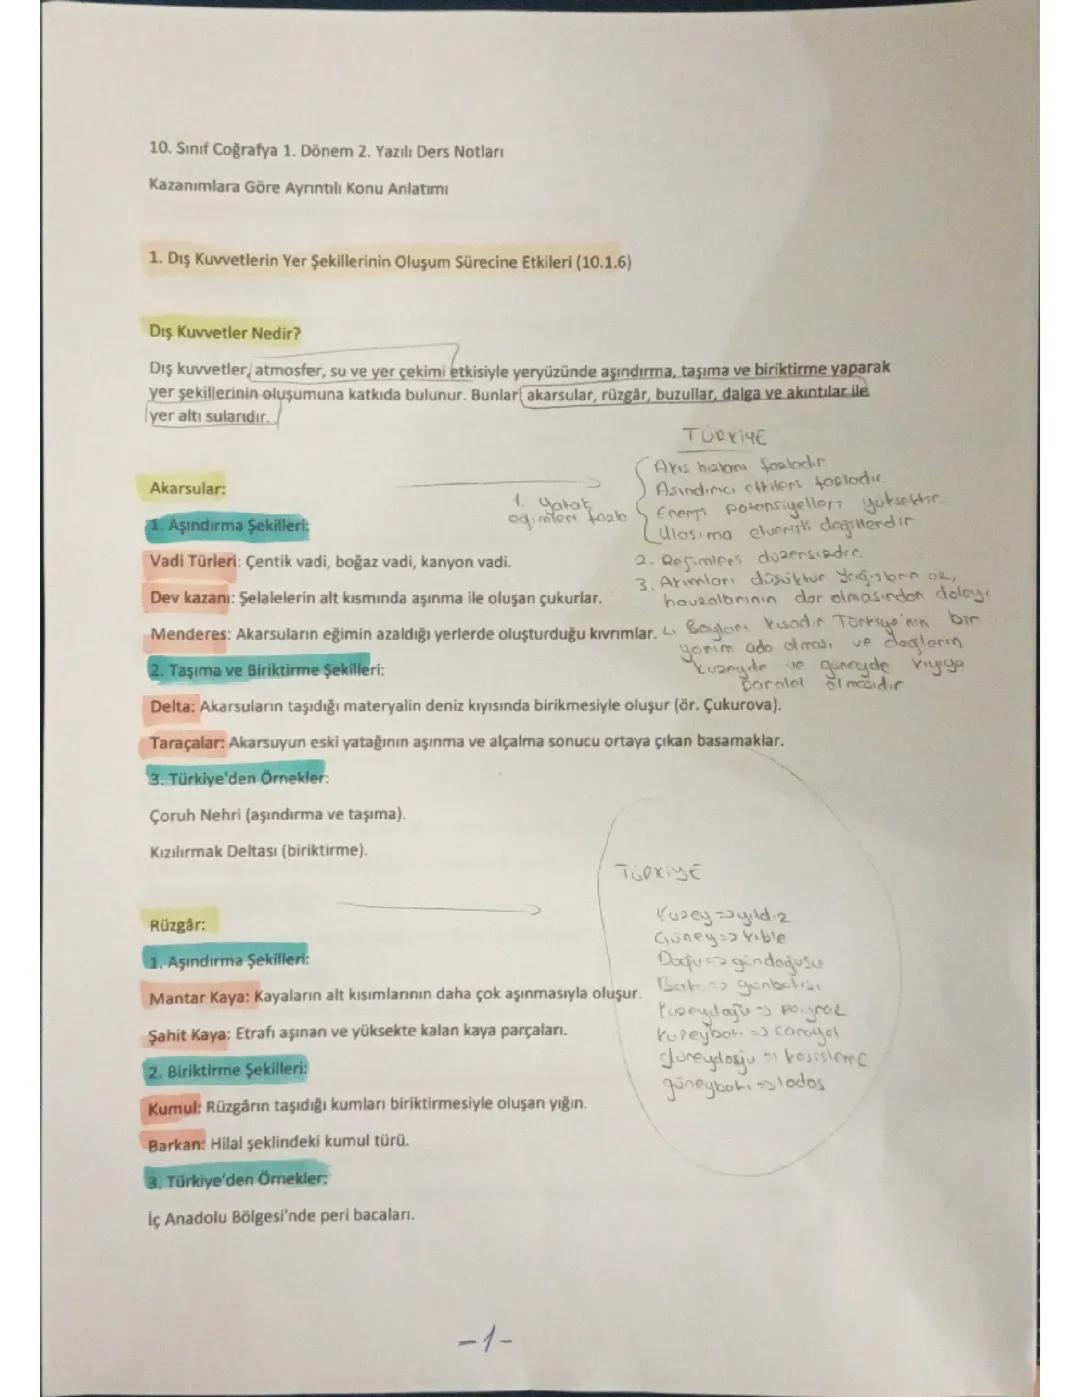 10. Sınıf Coğrafya 1. Dönem 2. Yazılı Ders Notları
Kazanımlara Göre Ayrıntılı Konu Anlatımı
1. Dış Kuvvetlerin Yer Şekillerinin Oluşum Sürecine Etkileri (10.1.6)
Dış Kuvvetler Nedir?
Dış kuvvetler, atmosfer, su ve yer çekimi etkisiyle yeryüzünde aşındırma, taşıma ve biriktirme yaparak
yer şekillerinin oluşumuna katkıda bulunur. Bunlar akarsular, rüzgâr, buzullar, dalga ve akıntılar ile
yer altı sularıdır.
Akarsular:
1. Aşındırma Şekilleri:
Vadi Türleri: Çentik vadi, boğaz vadi, kanyon vadi.
Dev kazanı: Şelalelerin alt kısmında aşınma ile oluşan çukurlar.
Menderes: Akarsuların eğimin azaldığı yerlerde oluşturduğu kıvrımlar.
TÜRKİYE
1. Yatak
eğimleri fazla
Akış hızları fazladır
Aşındırıcı etkileri fazladır.
Enerji potansiyelleri yüksektir.
Ulaşıma elverişli değillerdir
2. Rejimleri düzensizdir.
3. Akımları düşüktür Yağışların az,
havzalarının dar olmasından dolayı
Boyları kısadır Türkiye'nin bir
yarım ada olması ve dağların
kuzeyde ve güneyde kıyıya
paralel olmasıdır
2. Taşıma ve Biriktirme Şekilleri:
Delta: Akarsuların taşıdığı materyalin deniz kıyısında birikmesiyle oluşur (ör. Çukurova).
Taraçalar: Akarsuyun eski yatağının aşınma ve alçalma sonucu ortaya çıkan basamaklar.
3. Türkiye'den Örnekler:
Çoruh Nehri (aşındırma ve taşıma).
Kızılırmak Deltası (biriktirme).
Rüzgâr:
1. Aşındırma Şekilleri:
Mantar Kaya: Kayaların alt kısımlarının daha çok aşınmasıyla oluşur.
Şahit Kaya: Etrafı aşınan ve yüksekte kalan kaya parçaları.
2. Biriktirme Şekilleri:
Kumul: Rüzgârın taşıdığı kumları biriktirmesiyle oluşan yığın.
Barkan: Hilal şeklindeki kumul türü.
3. Türkiye'den Örnekler:
İç Anadolu Bölgesi'nde peri bacaları.
TÜRKİYE
Kuzey => yıldız
Güney => kıble
Doğu => gündoğusu
Batı => günbatısı
Kuzeydoğu => poyraz
Kuzeybatı => karayel
güneydoğu => keşişleme
güneybatı => lodos
-1-